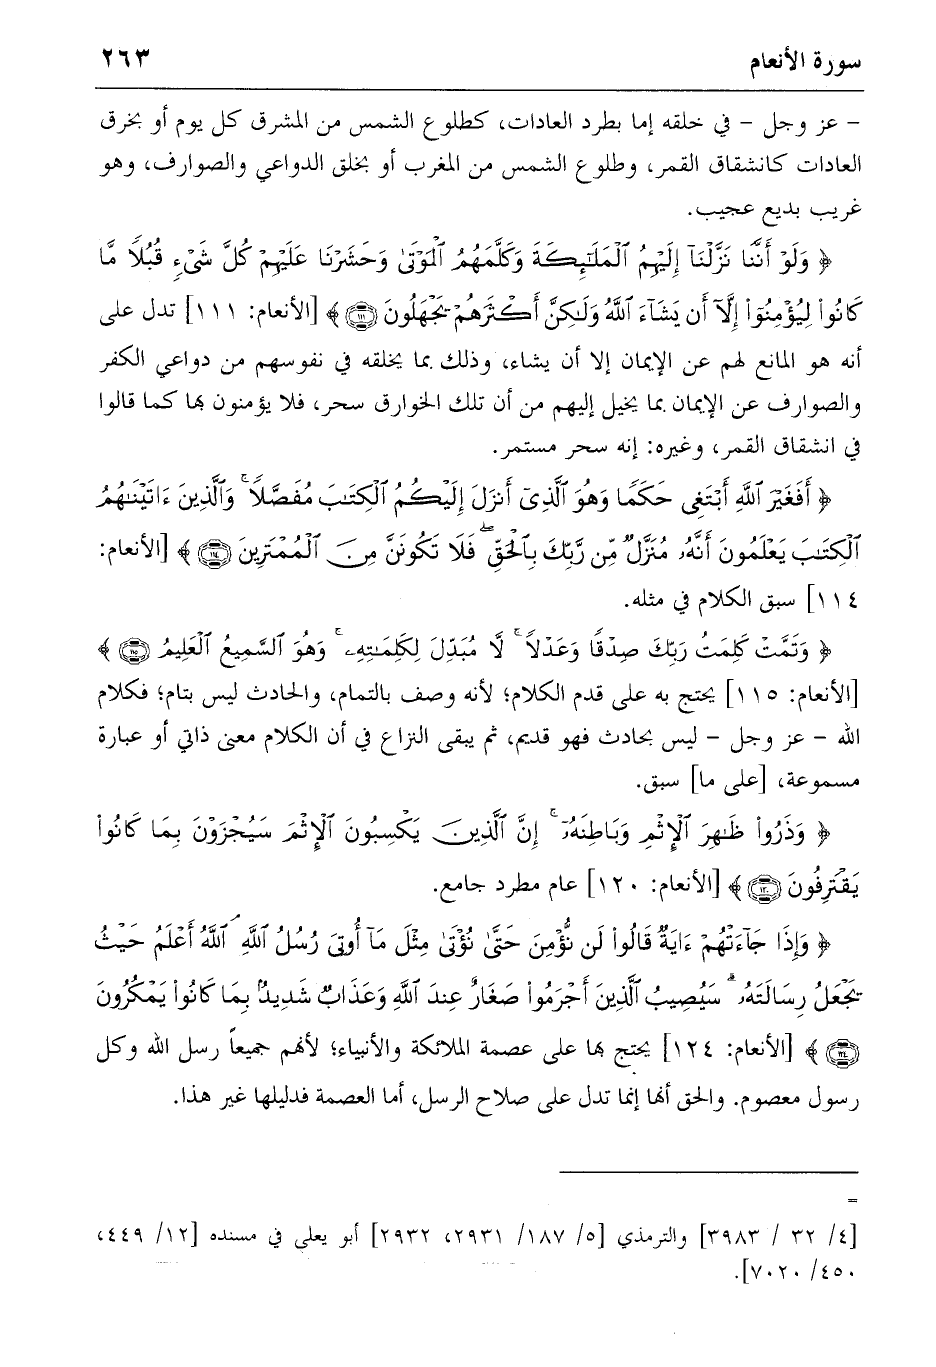 سورة الأنعام ٢٦٣
– عز وجل – في خلقه إما بطرد العادات، كطلوع الشمس من المشرق كل يوم أو بخرق
العادات كانشقاق القمر، وطلوع الشمس من المغرب أو بخلق الدواعي والصوارف، وهو
غريب بديع عجيب.
﴿ وَلَوْ أَنَّنَا نَزَّلْنَآ إِلَيْهِمُ ٱلْمَلَٰٓئِكَةَ وَكَلَّمَهُمُ ٱلْمَوْتَىٰ وَحَشَرْنَا عَلَيْهِمْ كُلَّ شَىْءٍ قُبُلًا مَّا
كَانُوا۟ لِيُؤْمِنُوٓا۟ إِلَّآ أَن يَشَآءَ ٱللَّهُ وَلَٰكِنَّ أَكْثَرَهُمْ يَجْهَلُونَ ۝١١١ ﴾ [الأنعام: ١١١] تدل على
أنه هو المانع لهم عن الإيمان إلا أن يشاء، وذلك بما يخلقه في نفوسهم من دواعي الكفر
والصوارف عن الإيمان بما يخيل إليهم من أن تلك الخوارق سحر، فلا يؤمنون بها كما قالوا
في انشقاق القمر، وغيره: إنه سحر مستمر.
﴿ أَفَغَيْرَ ٱللَّهِ أَبْتَغِى حَكَمًا وَهُوَ ٱلَّذِىٓ أَنزَلَ إِلَيْكُمُ ٱلْكِتَٰبَ مُفَصَّلًا ۚ وَٱلَّذِينَ ءَاتَيْنَٰهُمُ
ٱلْكِتَٰبَ يَعْلَمُونَ أَنَّهُۥ مُنَزَّلٌ مِّن رَّبِّكَ بِٱلْحَقِّ ۖ فَلَا تَكُونَنَّ مِنَ ٱلْمُمْتَرِينَ ۝١١٤ ﴾ [الأنعام:
١١٤] سبق الكلام في مثله.
﴿ وَتَمَّتْ كَلِمَتُ رَبِّكَ صِدْقًا وَعَدْلًا ۚ لَّا مُبَدِّلَ لِكَلِمَٰتِهِۦ ۚ وَهُوَ ٱلسَّمِيعُ ٱلْعَلِيمُ ۝١١٥ ﴾
[الأنعام: ١١٥] يحتج به على قدم الكلام؛ لأنه وصف بالتمام، والحادث ليس بتام؛ فكلام
الله – عز وجل – ليس بحادث فهو قديم، ثم يبقى النزاع في أن الكلام معنى ذاتي أو عبارة
مسموعة، [على ما] سبق.
﴿ وَذَرُوا۟ ظَٰهِرَ ٱلْإِثْمِ وَبَاطِنَهُۥٓ ۚ إِنَّ ٱلَّذِينَ يَكْسِبُونَ ٱلْإِثْمَ سَيُجْزَوْنَ بِمَا كَانُوا۟
يَقْتَرِفُونَ ۝١٢٠ ﴾ [الأنعام: ١٢٠] عام مطرد جامع.
﴿ وَإِذَا جَآءَتْهُمْ ءَايَةٌ قَالُوا۟ لَن نُّؤْمِنَ حَتَّىٰ نُؤْتَىٰ مِثْلَ مَآ أُوتِىَ رُسُلُ ٱللَّهِ ۘ ٱللَّهُ أَعْلَمُ حَيْثُ
يَجْعَلُ رِسَالَتَهُۥ ۗ سَيُصِيبُ ٱلَّذِينَ أَجْرَمُوا۟ صَغَارٌ عِندَ ٱللَّهِ وَعَذَابٌ شَدِيدٌۢ بِمَا كَانُوا۟ يَمْكُرُونَ
۝١٢٤ ﴾ [الأنعام: ١٢٤] يحتج بها على عصمة الملائكة والأنبياء؛ لأنهم جميعاً رسل الله وكل
رسول معصوم. والحق أنها إنما تدل على صلاح الرسل، أما العصمة فدليلها غير هذا.
=
[٤/ ٣٢ / ٣٩٨٣] والترمذي [٥/ ١٨٧/ ٢٩٣١، ٢٩٣٢] أبو يعلى في مسنده [١٢/ ٤٤٩،
٤٥٠/ ٧٠٢٠].